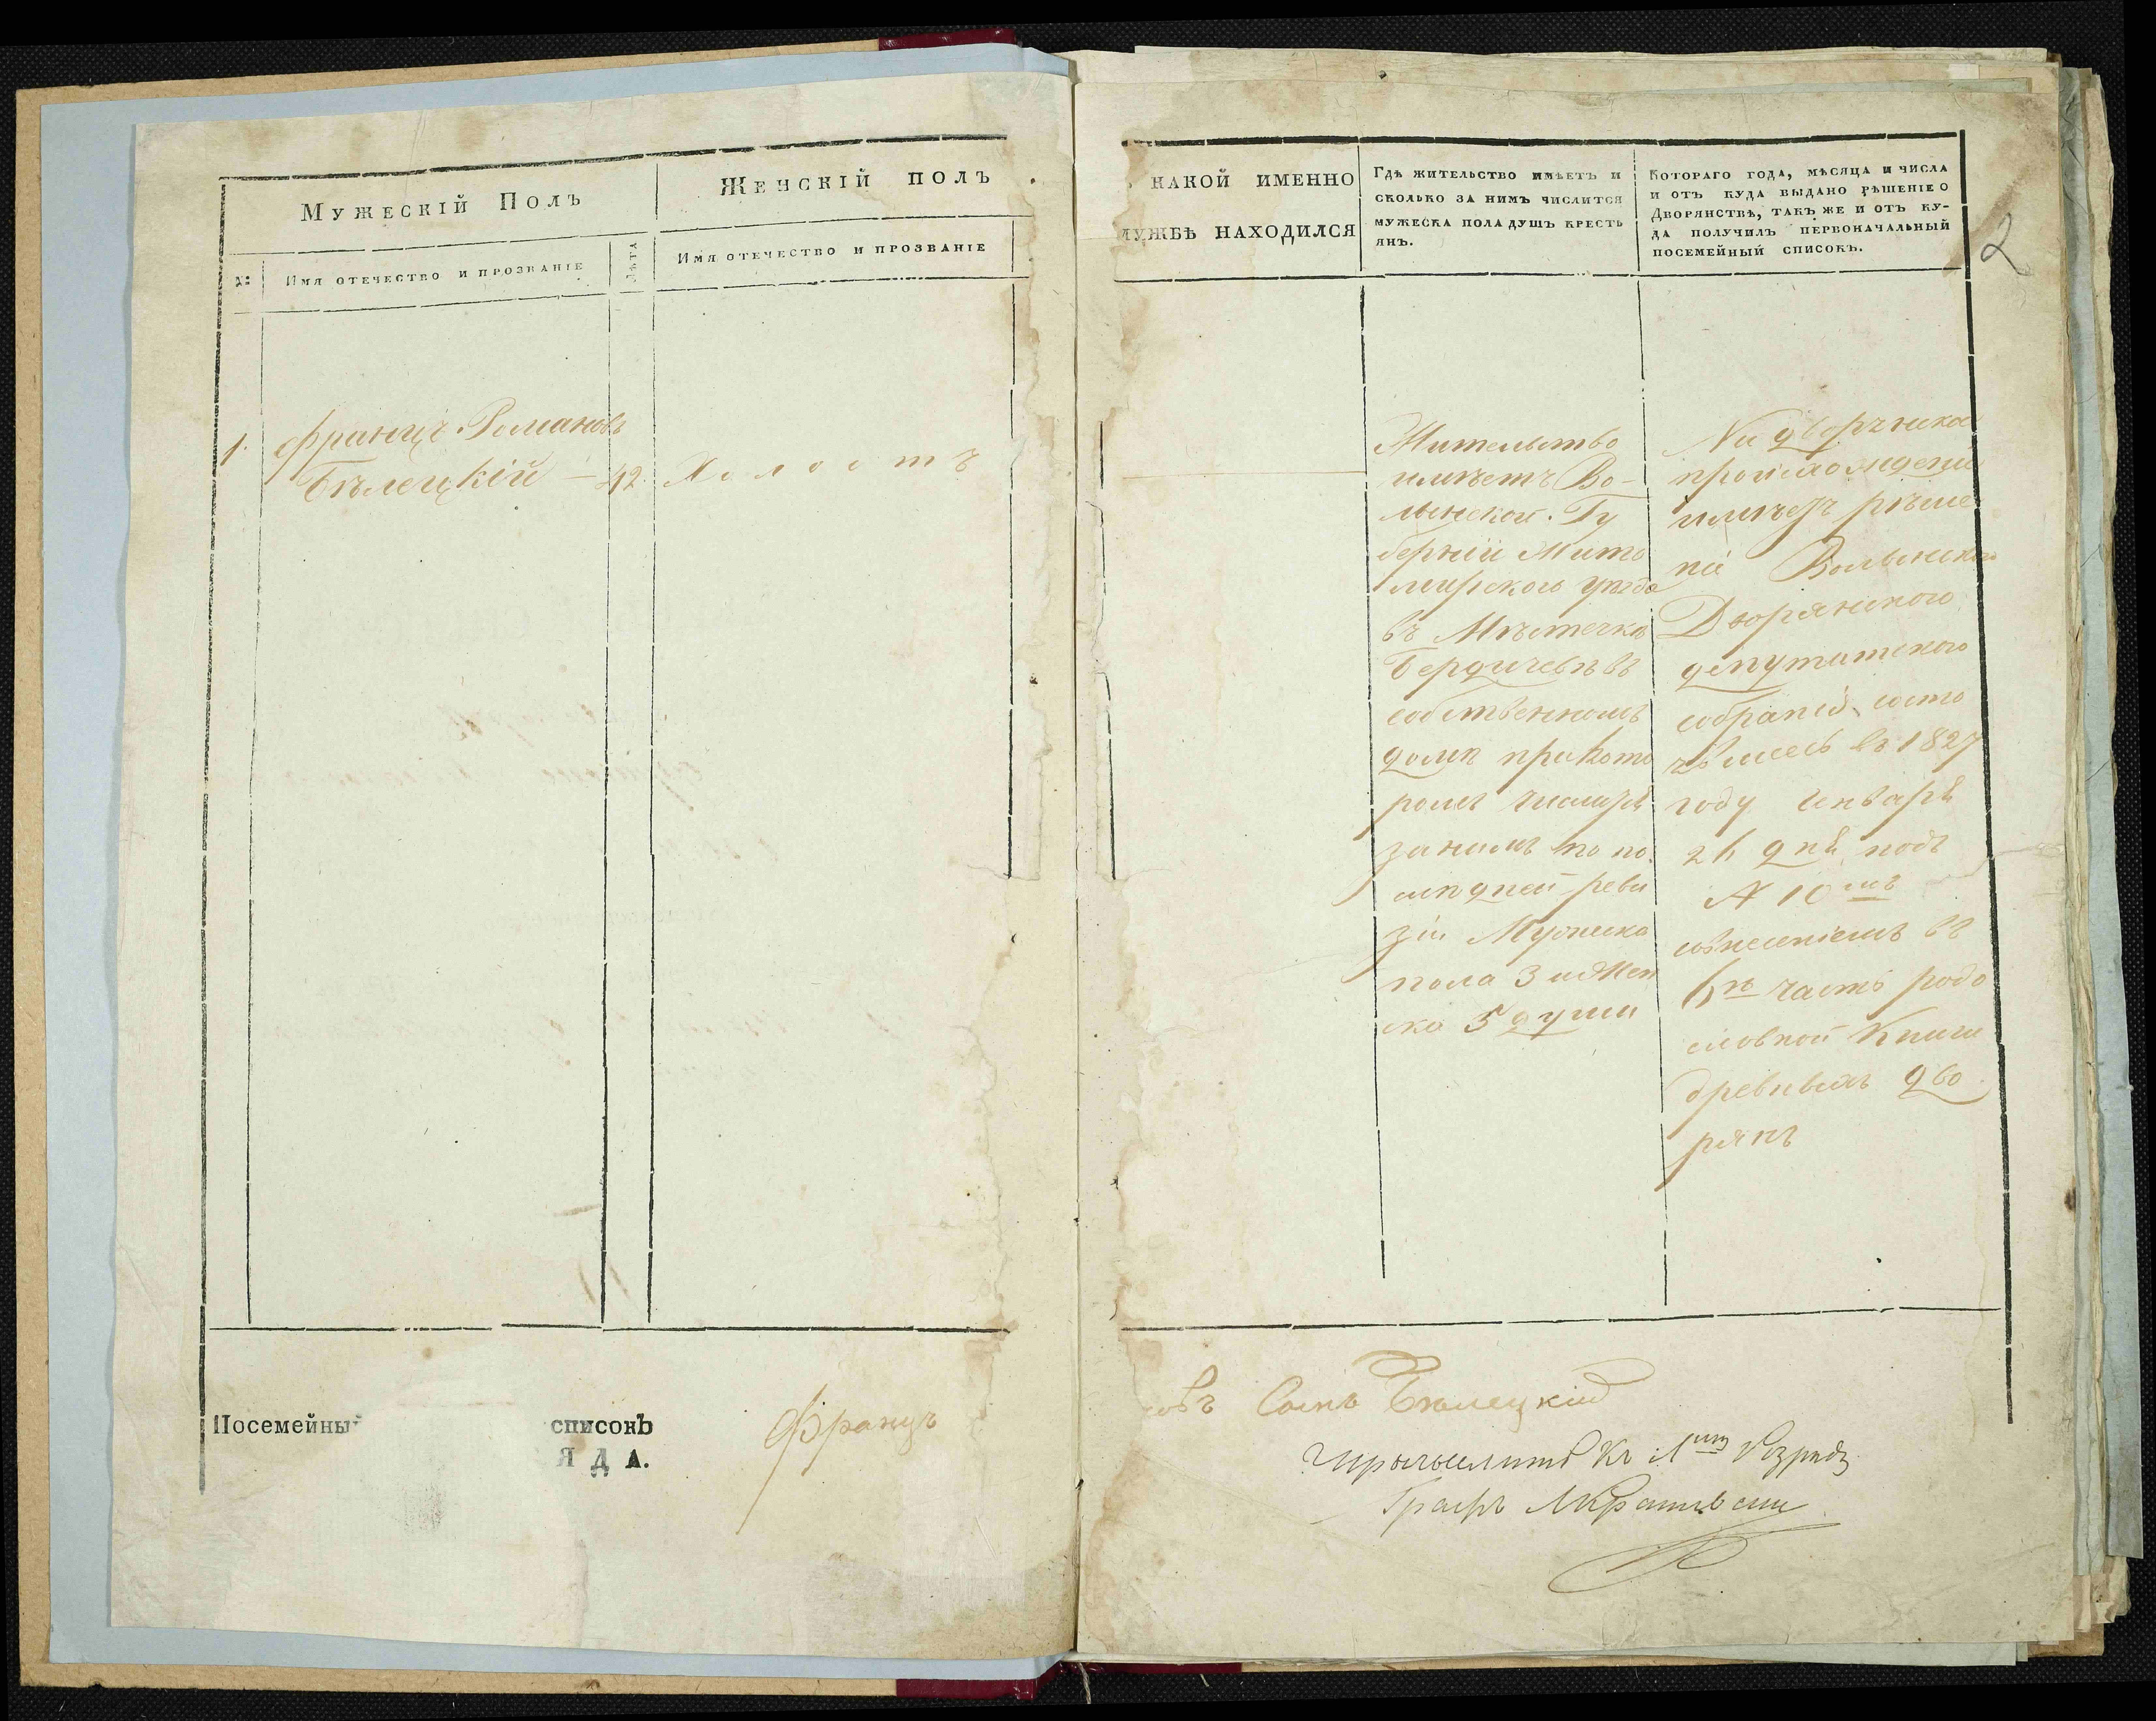 Мужескій Полъ
Женскій полъ
№
Имя отечество и прозваніе
Лѣта
Имя отечество и прозваніе
1.
Францъ Романовъ
Бѣлецкій — 42
Холостъ
Посемейный
списокъ
ЯДА.
Францъ
какой именно
лужбѣ находился
Гдѣ жительство имѣетъ и
сколько за нимъ числится
мужеска пола душъ кресть
янъ.
Котораго года, мѣсяца и числа
и отъ куда выдано рѣшеніе о
Дворянствѣ, такъ же и отъ ку-
да получилъ первоначальный
посемейный списокъ.
2
Жительство
имѣетъ Во-
лынской Гу
берніи Жито
мирскаго уѣзда
въ Мѣстечкѣ
Бердичевѣ въ
собственномъ
домѣ при кото
ромъ
за нимъ по по
слѣдней реви
зіи Мужеска
пола 3 и Жен
ска 5 души
На дворянское
происхожденіе
имѣетъ рѣше
ніе Волынскаго
Дворянскаго
депутатскаго
собранія, состо
явшеесь въ 1827
году Января
26 дня, подъ
№ 10мъ
внесеніемъ въ
6ю часть родо
словной Книги
древнихъ дво
рянъ
овъ Сынъ Бѣлецкій
къ 1му Разряду
Графъ